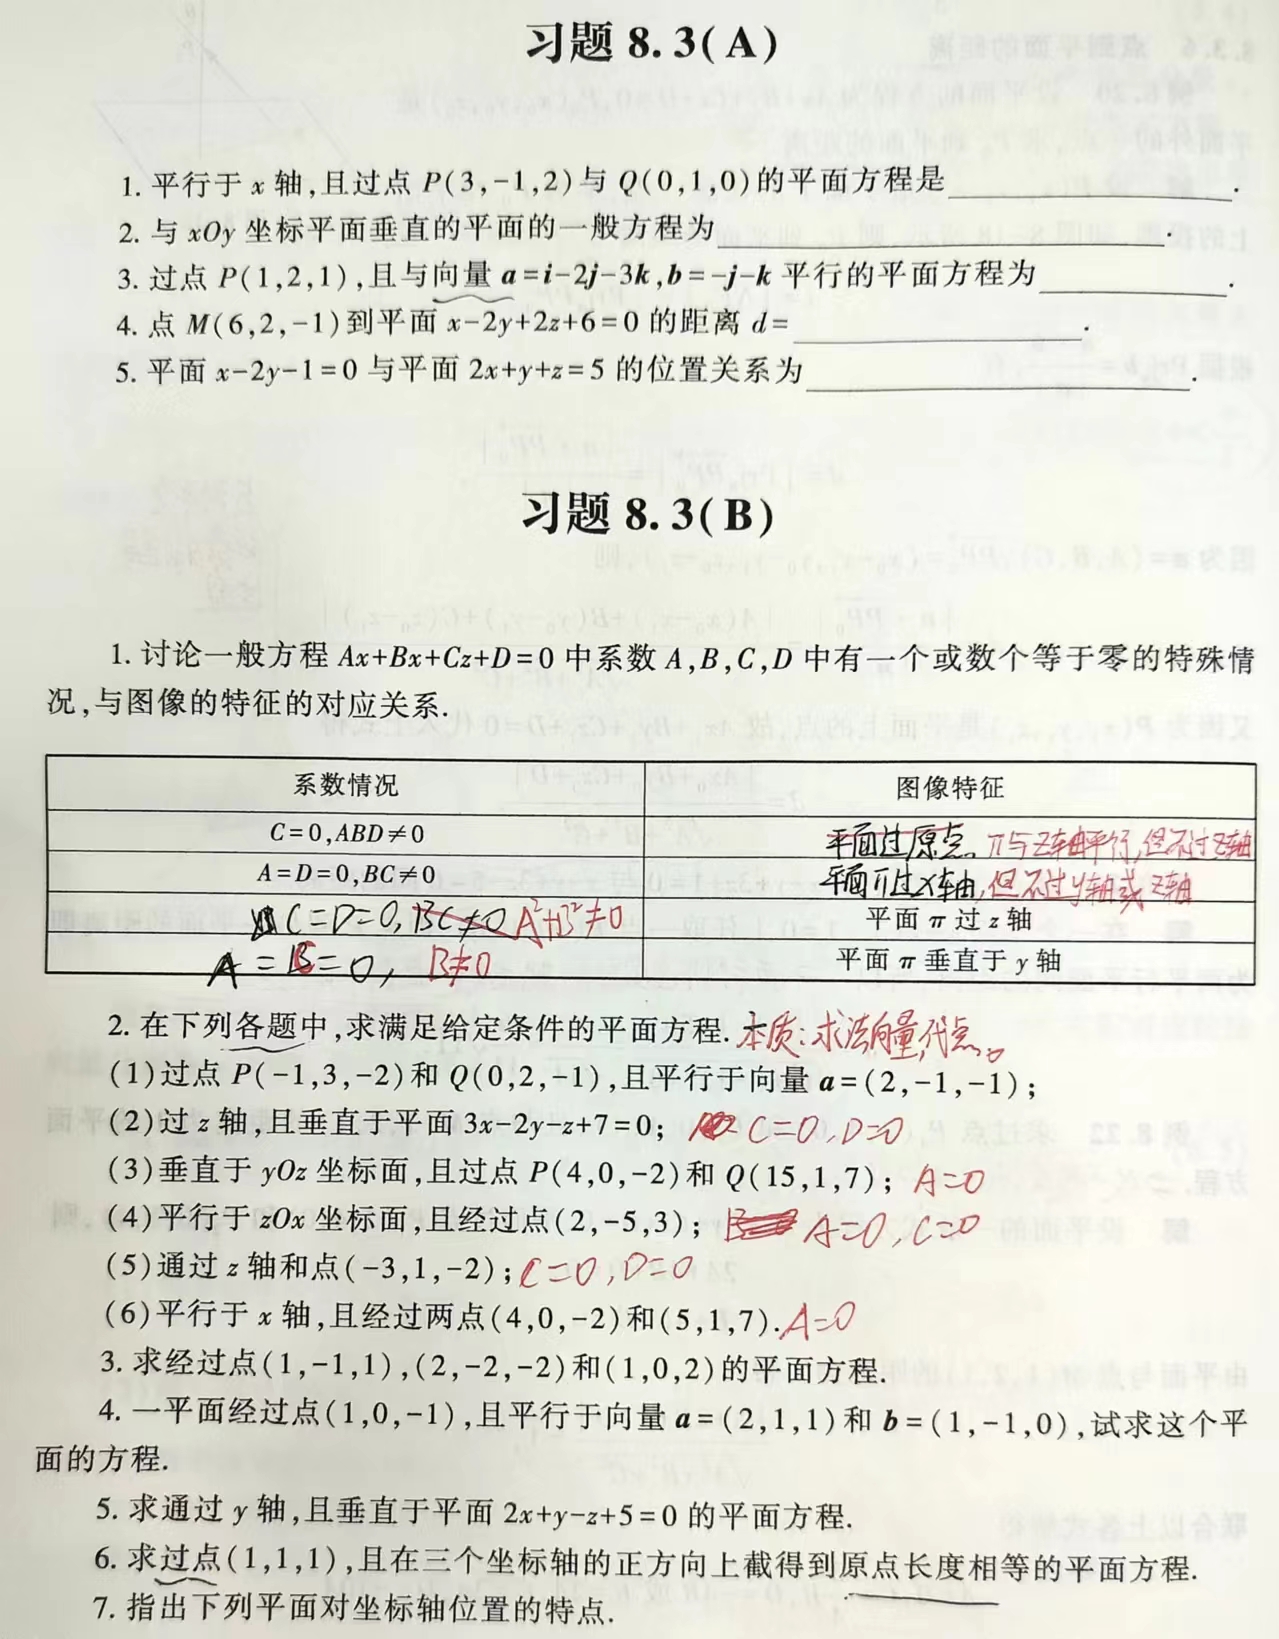 习题 8.3(A)
1. 平行于 x 轴,且过点 P(3,-1,2)与 Q(0,1,0)的平面方程是____.
2. 与 xOy 坐标平面垂直的平面的一般方程为____.
3. 过点 P(1,2,1),且与向量 a=i-2j-3k,b=-j-k 平行的平面方程为____.
4. 点 M(6,2,-1)到平面 x-2y+2z+6=0 的距离 d=____.
5. 平面 x-2y-1=0 与平面 2x+y+z=5 的位置关系为____.
习题 8.3(B)
1. 讨论一般方程 Ax+Bx+Cz+D=0 中系数 A,B,C,D 中有一个或数个等于零的特殊情
况,与图像的特征的对应关系.
系数情况 图像特征
C=0,ABD≠0 平面过原点. π与Z轴平行,但不过Z轴
A=D=0,BC≠0 平面π过X轴,但不过y轴或Z轴
C=D=0,BC≠0 A²+B²≠0 平面 π 过 z 轴
A=C=0, B≠0 平面 π 垂直于 y 轴
2. 在下列各题中,求满足给定条件的平面方程. 本质:求法向量,代点。
(1)过点 P(-1,3,-2)和 Q(0,2,-1),且平行于向量 a=(2,-1,-1);
(2)过 z 轴,且垂直于平面 3x-2y-z+7=0; C=0,D=0
(3)垂直于 yOz 坐标面,且过点 P(4,0,-2)和 Q(15,1,7); A=0
(4)平行于 zOx 坐标面,且经过点(2,-5,3); A=0,C=0
(5)通过 z 轴和点(-3,1,-2); C=0,D=0
(6)平行于 x 轴,且经过两点(4,0,-2)和(5,1,7). A=0
3. 求经过点(1,-1,1),(2,-2,-2)和(1,0,2)的平面方程.
4. 一平面经过点(1,0,-1),且平行于向量 a=(2,1,1)和 b=(1,-1,0),试求这个平
面的方程.
5. 求通过 y 轴,且垂直于平面 2x+y-z+5=0 的平面方程.
6. 求过点(1,1,1),且在三个坐标轴的正方向上截得到原点长度相等的平面方程.
7. 指出下列平面对坐标轴位置的特点.